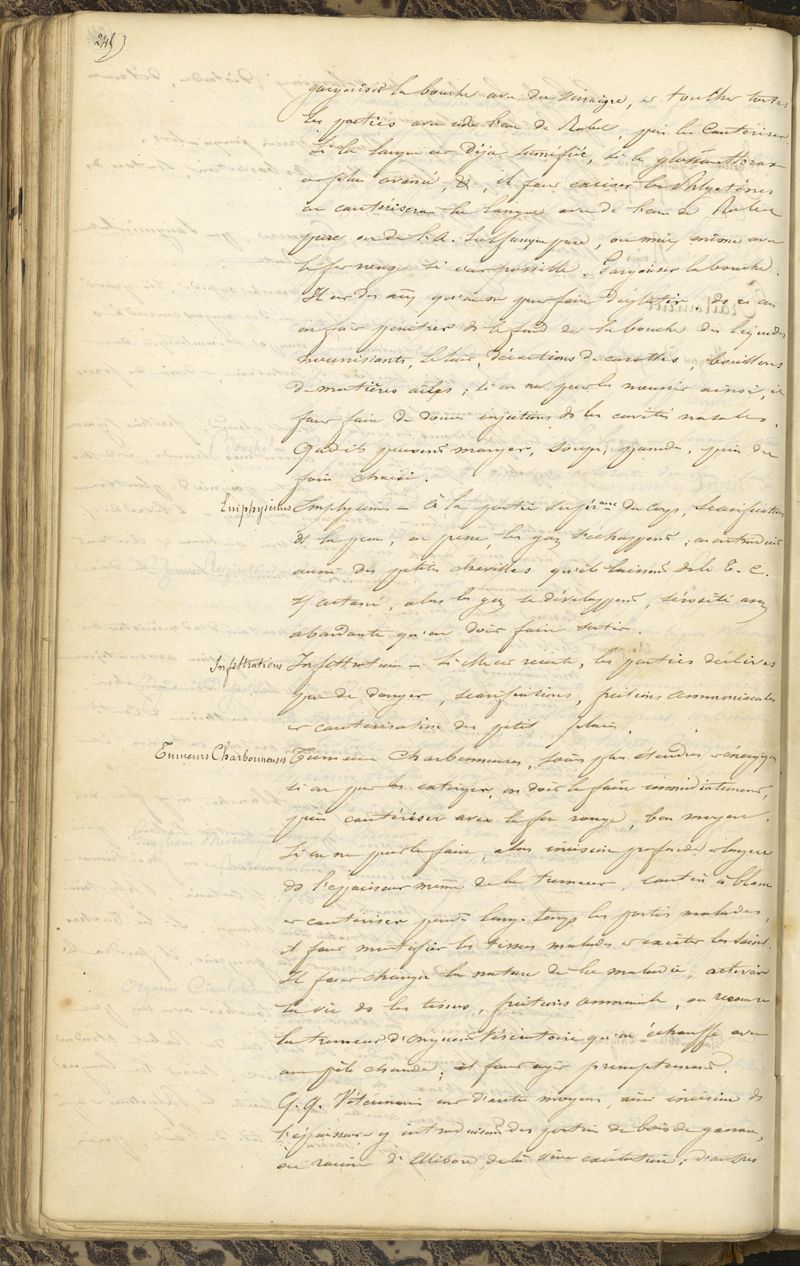 gargariser la bouche avec du Vinaigre, et toucher toutes
les parties avec eau de Rabel, puis les Cautériser.
Si la langue est déja tuméfiée, si le glossanthrax
est plus avancé, &, il faut exciser les Phlyctènes
on cautérisera la langue avec de l'eau de Rabel
pure ou de l'A. Sulfurique pure, ou mieux même avec
le fer rouge si c'est possible. Gargariser la bouche.
Il est des aux qu'on ne peut faire déglutir. ds ce cas
on fait pénétrer ds le fond de la bouche des liquides
nourrissants, le lait, décoctions de carottes, bouillons
de matières ; si on ne peut les nourrir ainsi, il
faut faire de douces injections ds les cavités nasales.
Qd ils peuvent manger, soupe, , puis du
foin choisi.
Emphysèmes Emphysème - à la partie supérieure du corps, Scarifications
ds la peau, on presse, les gaz s'échappent, on introduit
aussi des petites chevilles qu'on laisse ds le T. C.
, alors les gaz se développent, sérosité assez
abondante qu'on doit faire sortir.
Infiltrations Infiltration - Si elle est récente, ds les parties déclives
peu de danger, scarifications, frictions ammoniacales
et cautérisation des petites plaies.
Tumeurs Charbonneuses Tumeurs Charbonneuses, soins plus étendus et énergiques
si on peut les extirper, on doit le faire immédiatement,
puis cautériser avec le fer rouge, bon moyen.
Si on ne peut le faire, alors incision profonde et longue
ds l'épaisseur même de la tumeur, cautère à blanc
et cautériser pendt longtemps les parties malades,
il faut mortifier les tissus malades et exciter les sains.
Il faut changer la nature de la maladie, activer
la vie ds les tissus, frictions ammoniacales, on recouvre
la tumeur d'onguent Vésicatoire qu'on échauffe avec
une pelle chaude ; il faut agir promptement.
Q.q. Vétérinaires ont d'autres moyens, ainsi incision ds
l'épaisseur y introduisant des portions de bois de garou,
ou racine d'Ellébore, de là vive excitation ; d'autres